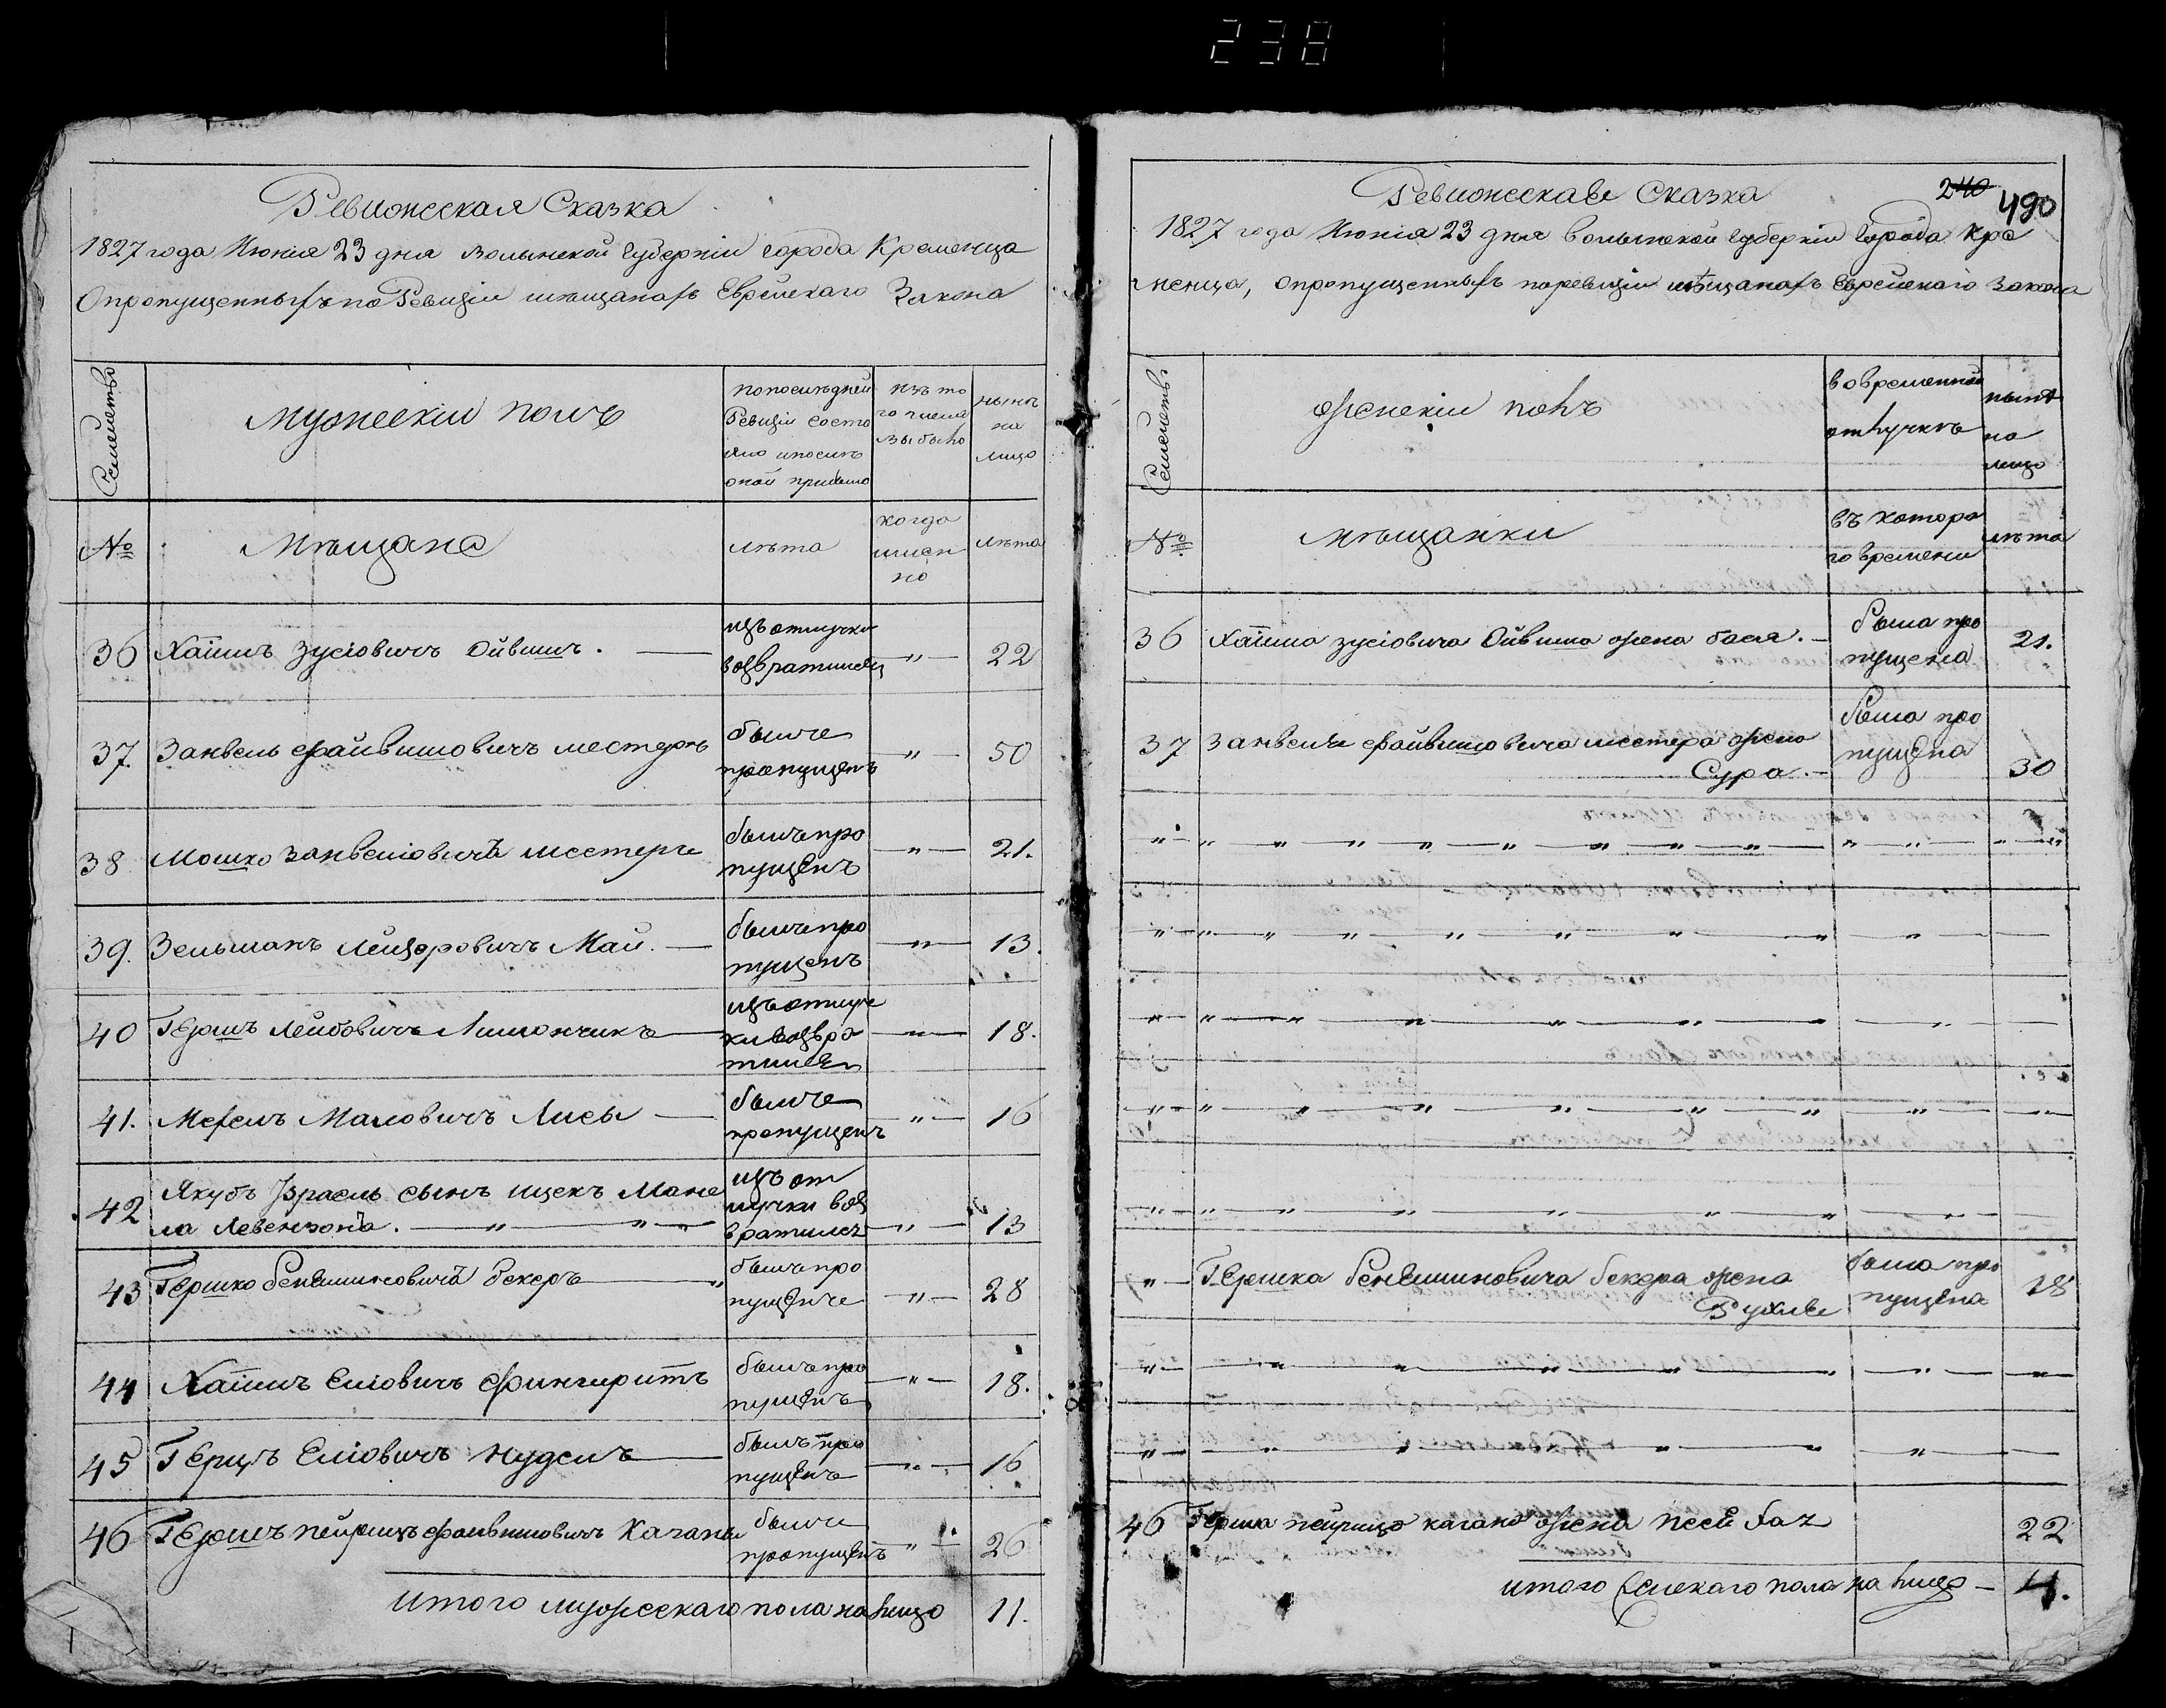 238
Ревижская Сказка
1827 года Июня 23 дня Волынской Губерніи города Кременца
О пропущенныхъ по Ревизіи мѣщанахъ Еврейскаго Закона
Семейство
Мужескій полъ
По послѣдней
Ревизіи состо
яло и послѣ
оной прибыло
Изъ то
го числа
выбыло
нынѣ
на
лицо
№
Мѣщане
лѣта
когда
имен
но
лѣта
36 Хаимъ Зусіовичъ Ойвишъ. изъ отлучки возвратился " 22
37. Занвель Файвишовичъ местеръ былъ пропущенъ " 50
38 Мошко Занвеліовичъ местеръ былъ пропущенъ " 21.
39. Зельманъ Лейзеровичъ Май. былъ пропущенъ " 13.
40 Гершъ Лейбовичъ Лимончикъ изъ отлучки возвратился " 18.
41. Мехелъ Маловичъ Лисы былъ пропущенъ " 16
42 Якубъ Израель сынъ Ицекъ Мане
ла Левензона. " " изъ отлучки возвратился " 13
43 Гершко Беніеминовичъ Бекеръ " былъ пропущенъ " 28
44 Хаимъ Еліовичъ Фингиритъ былъ пропущенъ " 18.
45 Герцъ Еліовичъ Нудель былъ пропущенъ " 16
46 Гершъ Пейрецъ Файвишовичъ Каганъ былъ пропущенъ " 26
Итого мужескаго пола на лицо 11.
Ревижская Сказка
240
490
1827 года Июня 23 дня Волынской Губерніи Города Кре
менца, О пропущенныхъ по ревизіи мѣщанахъ Еврейскаго Закона
Семейство
Женскій полъ
во временной
отлучкѣ
нынѣ
на
лицо
№
Мѣщанки
въ которо
го времени
лѣта
36 Хаима Зусіовича Ойвиша жена Бася. была пропущена 21.
37 Занвеля Файвишовича местера жена
Сура. была пропущена 30
" Гершка Беніеминовича Бекера жена
Рухля была пропущена 28
46 Герша Пейреца Кагана жена Песе Хая 22
итого Женскаго пола на лицо 4.